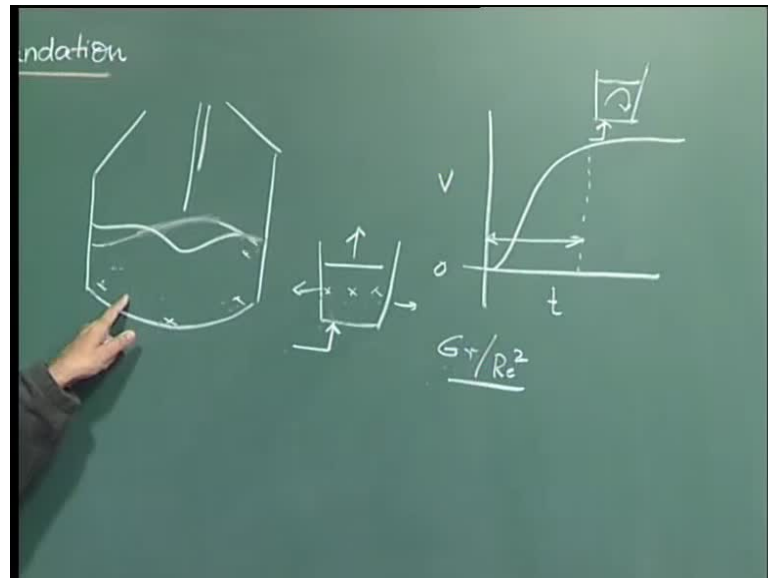 ndation
V
0
t
Gr/Re²